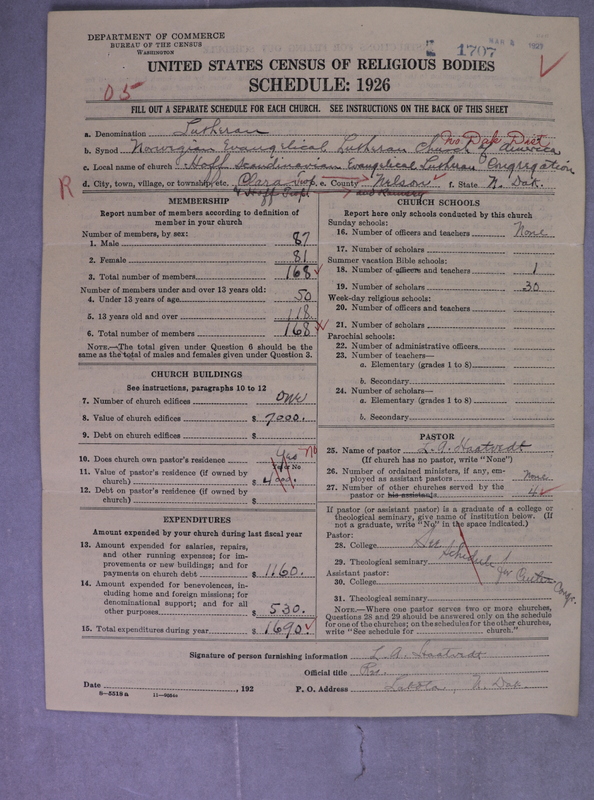 DEPARTMENT OF COMMERCE
BUREAU OF THE CENSUS
WASHINGTON
1707
MAR 2 1927
UNITED STATES CENSUS OF RELIGIOUS BODIES
SCHEDULE: 1926
05
FILL OUT A SEPARATE SCHEDULE FOR EACH CHURCH. SEE INSTRUCTIONS ON THE BACK OF THIS SHEET
a. Denomination Lutheran
No. Dak. Dist.
b. Synod Norwegian Evangelical Lutheran Church of America
c. Local name of church Hoff Scandinavian Evangelical Lutheran Congregation
R
d. City, town, village, or township, etc. Clara Twp. e. County Nelson f. State N. Dak.
and Ramsey
MEMBERSHIP
Report number of members according to definition of
member in your church
Number of members, by sex:
1. Male 87
2. Female 81
3. Total number of members 168
Number of members under and over 13 years old:
4. Under 13 years of age 50
5. 13 years old and over 118
6. Total number of members 168
NOTE.—The total given under Question 6 should be the
same as the total of males and females given under Question 3.
CHURCH BUILDINGS
See instructions, paragraphs 10 to 12
7. Number of church edifices One
8. Value of church edifices $ 7000.
9. Debt on church edifices $
10. Does church own pastor's residence? Yes No
Yes or No
11. Value of pastor's residence (if owned by
church) $ 4000.
12. Debt on pastor's residence (if owned by
church) $
EXPENDITURES
Amount expended by your church during last fiscal year
13. Amount expended for salaries, repairs,
and other running expenses; for im-
provements or new building; and for
payments on church debt $ 1160.
14. Amount expended for benevolences, in-
cluding home and foreign missions; for
denominational support; and for all
other purposes $ 530.
15. Total expenditures during year $ 1690.
CHURCH SCHOOLS
Report here only schools conducted by this church
Sunday schools:
16. Number of officers and teachers None
17. Number of scholars
Summer vacation Bible schools:
18. Number of officers and teachers 1
19. Number of scholars 30
Week-day religious schools:
20. Number of officers and teachers
21. Number of scholars
Parochial schools:
22. Number of administrative officers
23. Number of teachers—
a. Elementary (grades 1 to 8)
b. Secondary
24. Number of scholars—
a. Elementary (grades 1 to 8)
b. Secondary
PASTOR
25. Name of pastor L. A. Haatvedt
(If church has no pastor, write "None")
26. Number of ordained ministers, if any, em-
ployed as assistant pastors None
27. Number of other churches served by the
pastor or his assistants 4
If pastor (or assistant pastor) is a graduate of a college or
theological seminary, give name of institution below. (If
not a graduate, write "No" in the space indicated.)
Pastor:
28. College See
29. Theological seminary Schedule
for Congr.
Assistant pastor:
30. College
31. Theological seminary
NOTE.—Where one pastor serves two or more churches,
Questions 28 and 29 should be answered only on the schedule
for one of the churches; on the schedules for the other churches,
write "See schedule for church."
Signature of person furnishing information L. A. Haatvedt
Official title Rev.
Date , 192 P. O. Address Lakota, N. Dak.
8—5519a 11—9054c